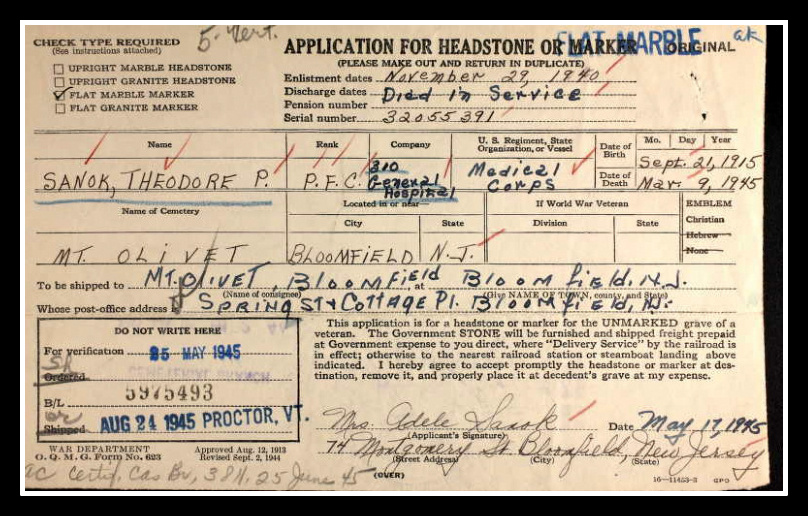 CHECK TYPE REQUIRED
(See instructions attached)
5-Vert.
UPRIGHT MARBLE HEADSTONE
UPRIGHT GRANITE HEADSTONE
FLAT MARBLE MARKER
FLAT GRANITE MARKER
APPLICATION FOR HEADSTONE OR MARKER
FLAT MARBLE
ORIGINAL
ak
(PLEASE MAKE OUT AND RETURN IN DUPLICATE)
Enlistment dates November 29, 1940
Discharge dates Died in Service
Pension number
Serial number 32055391
Name Rank Company U. S. Regiment, State Organization, or Vessel Date of Birth Mo. Day Year
Sept. 21, 1915
SANOK, THEODORE P. P.F.C. 310 General Hospital Medical Corps Date of Death Mar. 9, 1945
Name of Cemetery Located in or near— If World War Veteran EMBLEM
City State Division State Christian
Hebrew
None
MT. OLIVET BLOOMFIELD N.J.
To be shipped to MT. OLIVET, Bloomfield at Bloomfield, N.J.
(Name of consignee) (Give NAME OF TOWN, county, and State)
Whose post-office address is Spring St & Cottage Pl. Bloomfield, N.J.
DO NOT WRITE HERE
For verification 25 MAY 1945
Ordered
CEMETERIAL BRANCH
5975493
B/L
Shipped AUG 24 1945 PROCTOR, VT.
This application is for a headstone or marker for the UNMARKED grave of a
veteran. The Government STONE will be furnished and shipped freight prepaid
at Government expense to you direct, where "Delivery Service" by the railroad is
in effect; otherwise to the nearest railroad station or steamboat landing above
indicated. I hereby agree to accept promptly the headstone or marker at des-
tination, remove it, and properly place it at decedent's grave at my expense.
Mrs. Adele Sanok Date May 17, 1945
(Applicant's Signature)
74 Montgomery St. Bloomfield, New Jersey
(Street Address) (City) (State)
WAR DEPARTMENT
O. Q. M. G. Form No. 623
Approved Aug. 12, 1913
Revised Sept. 2, 1944
(OVER)
16—11453-3 GPO
ac Certif. Cas Br, 38N, 25 June 45